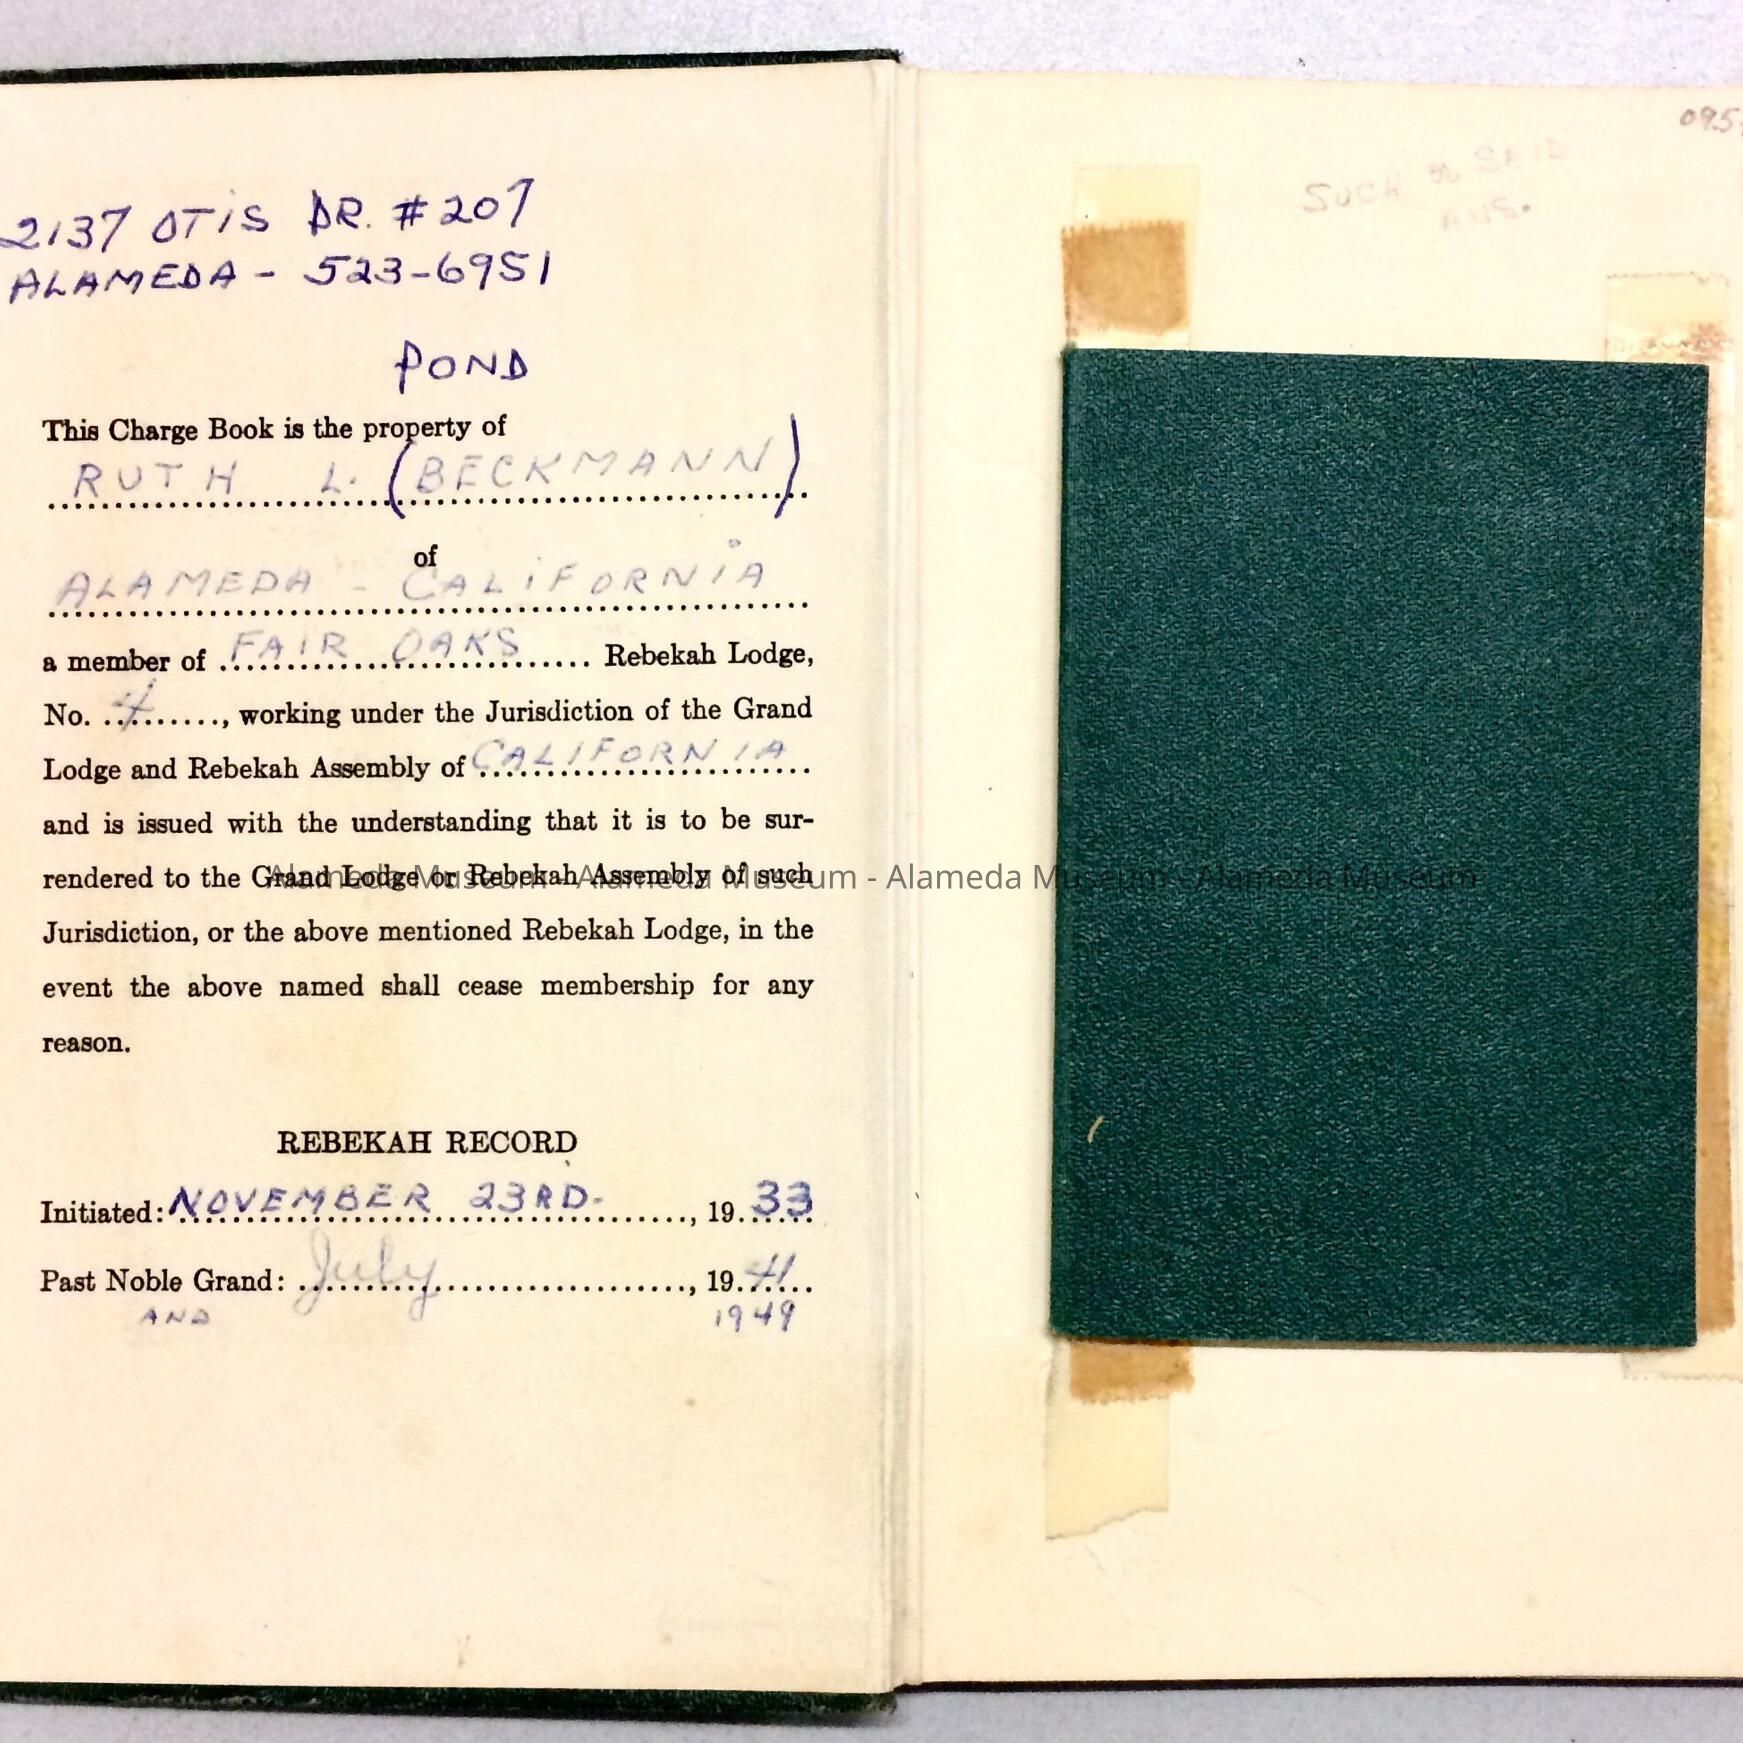 2137 OTIS DR. #207
ALAMEDA - 523-6951
POND
This Charge Book is the property of
RUTH L. (BECKMANN)
of
ALAMEDA - CALIFORNIA
a member of FAIR OAKS Rebekah Lodge,
No. 4, working under the Jurisdiction of the Grand
Lodge and Rebekah Assembly of CALIFORNIA
and is issued with the understanding that it is to be sur-
rendered to the Grand Lodge or Rebekah Assembly of such
Jurisdiction, or the above mentioned Rebekah Lodge, in the
event the above named shall cease membership for any
reason.
REBEKAH RECORD
Initiated: NOVEMBER 23RD., 1933
Past Noble Grand: July, 1941
AND 1949
SUCH or SAID
Alameda Museum - Alameda Museum - Alameda Museum - Alameda Museum